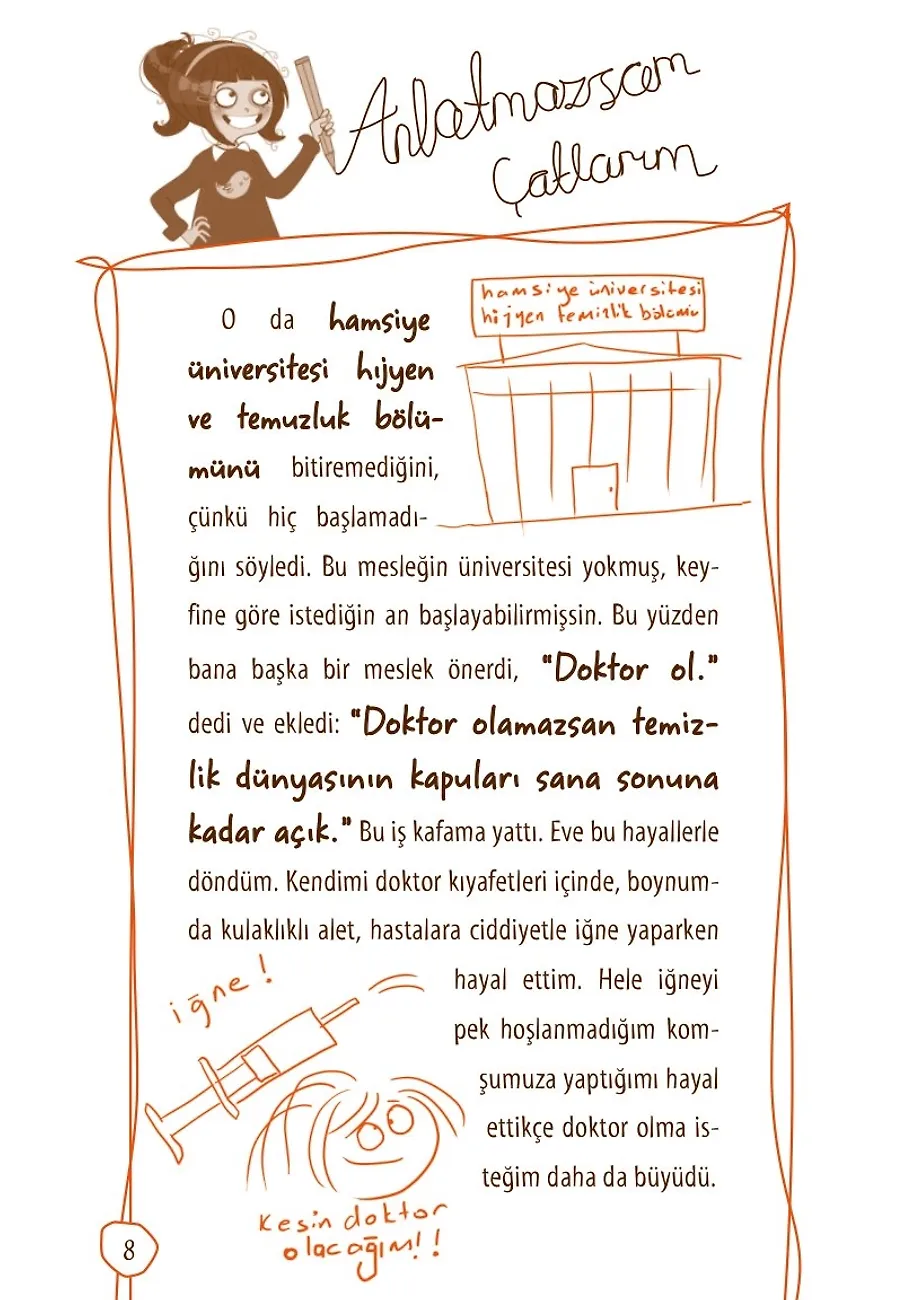 Anlatmazsam
Çatlarım
hamsiye üniversitesi
hijyen temizlik bölümü
O da hamsiye
üniversitesi hıjyen
ve temuzluk bölü-
münü bitiremediğini,
çünkü hiç başlamadı-
ğını söyledi. Bu mesleğin üniversitesi yokmuş, key-
fine göre istediğin an başlayabilirmişsin. Bu yüzden
bana başka bir meslek önerdi, "Doktor ol."
dedi ve ekledi: "Doktor olamazsan temiz-
lik dünyasının kapuları sana sonuna
kadar açık." Bu iş kafama yattı. Eve bu hayallerle
döndüm. Kendimi doktor kıyafetleri içinde, boynum-
da kulaklıklı alet, hastalara ciddiyetle iğne yaparken
hayal ettim. Hele iğneyi
pek hoşlanmadığım kom-
şumuza yaptığımı hayal
ettikçe doktor olma is-
teğim daha da büyüdü.
iğne!
Kesin doktor
olacağım!!
8